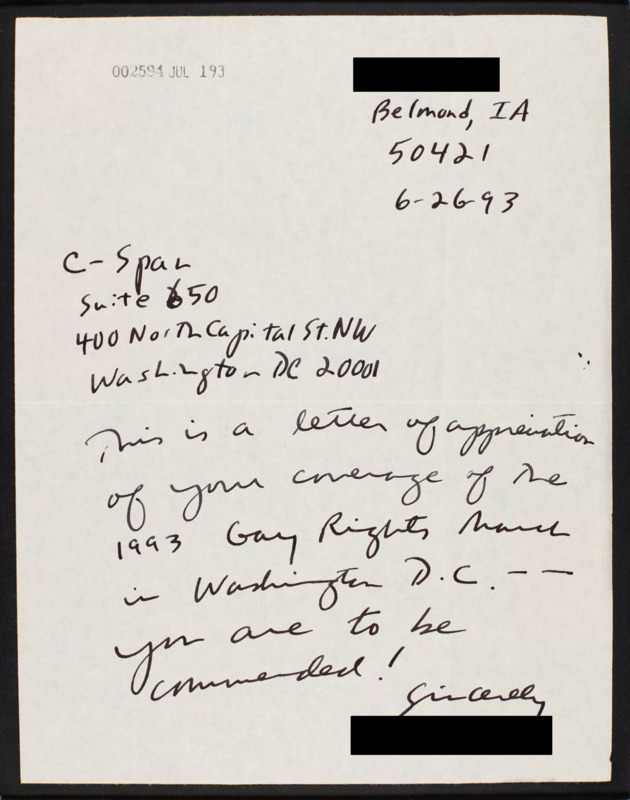 002594 JUL 193
Belmond, IA
50421
6-26-93
C-Span
Suite 650
400 North Capital St. NW
Washington DC 20001
This is a letter of appreciation
of your coverage of the
1993 Gay Rights March
in Washington D.C. --
you are to be
commended!
Sincerely